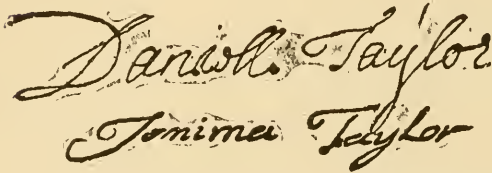 Daniell. Taylor
Jemima Taylor